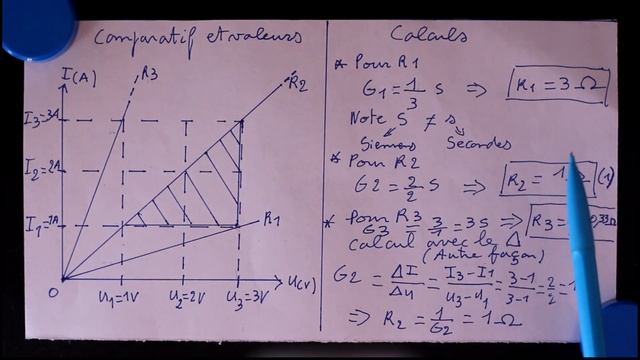 Comparatif et valeurs
I(A)
R3
R2
I3=3A
I2=2A
I1=1A
R1
0
U1=1V
U2=2V
U3=3V
U(V)
Calculs
* Pour R1
G1=1/3 S ⇒ R1=3Ω
Note S ≠ s
Siemens Secondes
* Pour R2
G2=2/2 S ⇒ R2=1Ω (1)
* Pour R3
G3=3/1=3S ⇒ R3=0,33Ω
Calcul avec le Δ
(Autre façon)
G2=ΔI/Δu=I3-I1/u3-u1=3-1/3-1=2/2=1
⇒ R2=1/G2=1Ω